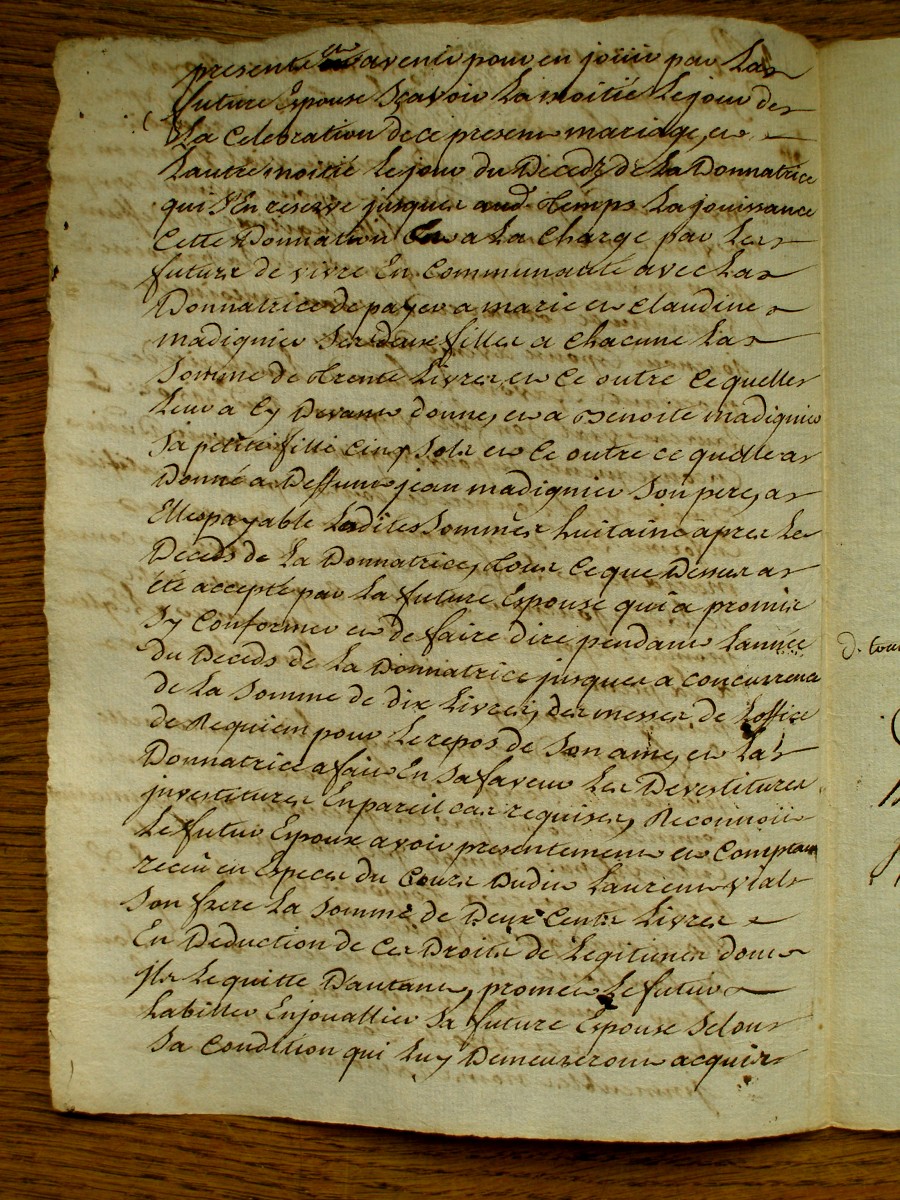 presents et avenir pour en joüir par La
future Espouse Scavoir La moitié Le jour de
La Celebration de ce present mariage, et
Lautre moitié Le jour du Deceds de La Donnatrice
qui S'En reserve jusques aud. temps La jouissance
Cette Donnation Est a La Charge par Les
futurs de vivre En Communauté avec La
Donnatrice de payer a marie et Claudine
madignier Ses deux filles a Chacune La
Somme de trente Livres, et Ce outre Ce quelles
Leur a Cy Devant donné, et a Benoite madignier
Sa petite fille Cinq Sols et Ce outre ce quelle a
Donné a Deffunt jean madignier Son pere, a
Elles payable Ladites Sommes huitaine apres Le
Deceds de La Donnatrice, tout Ce que Dessus a
été accepté par La future Espouse qui a promis
Sy Conformer et de faire dire pendant Lannée
du Deceds de La Donnatrice jusques a concurrence
de La Somme de dix Livres, des messes de Loffice
de Requiem pour Le repos de Son ame, et La
Donnatrice a fait En Sa faveur Les Devestitures
jnvestitures En pareil cas requises, Reconnoit
Le futur Epoux avoir presentement et Comptant
reçu en Especes du Cours Dudit Laurent vial
Son frere La Somme de Deux Cents Livres
En Deduction de Ces Droits de Legitimes dont
jls Le quitte Dautant, promet Le futur
habiller Enjoüallier Sa future Espouse Selon
Sa Condition qui Luy Demeureront acquis